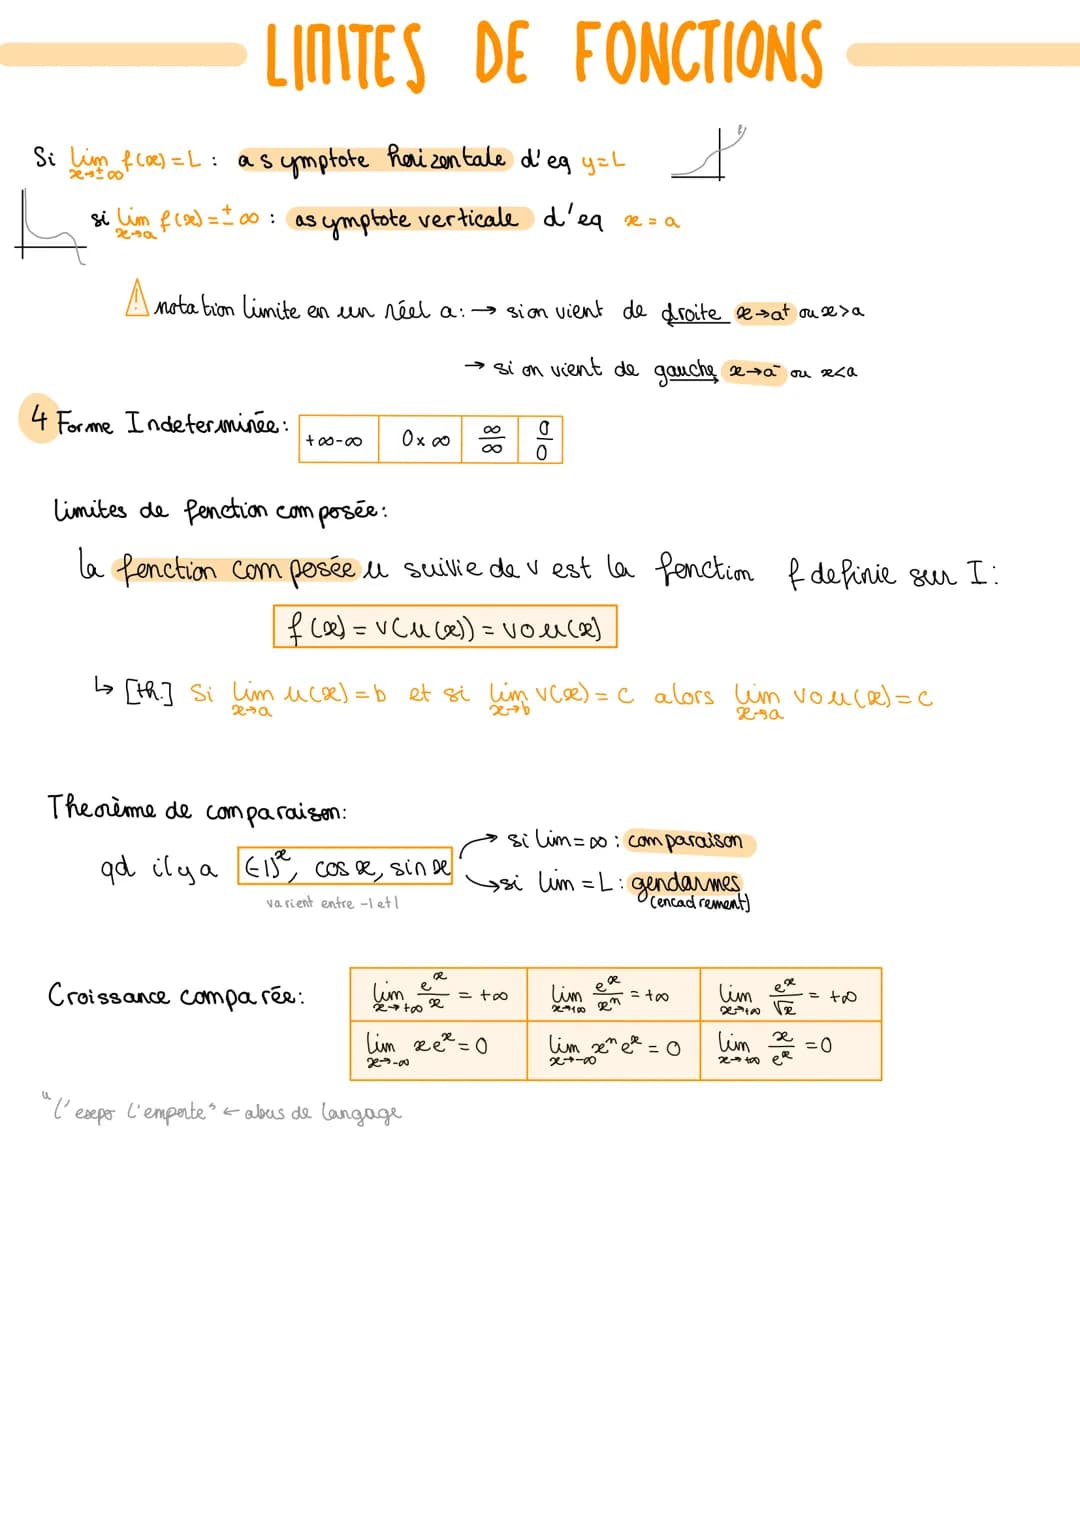 LIMITES DE FONCTIONS
Si lim f(x) = L : asymptote horizontale d'eq y=L
x→±∞
si lim f(x) = ±∞ : asymptote verticale d'eq x = a
x→a
! notation limite en un réel a : → si on vient de droite x→a⁺ ou x>a
→ si on vient de gauche x→a⁻ ou x<a
4 Forme Indeterminée :
+∞-∞ 0×∞ ∞/∞ 0/0
limites de fonction composée :
la fonction composée u suivie de v est la fonction f definie sur I :
f(x) = v(u(x)) = vou(x)
↳ [th.] Si lim u(x) = b et si lim v(x) = c alors lim vou(x) = c
x→a x→b x→a
Theorème de comparaison :
→ si lim = ∞ : comparaison
qd il y a (-1)ˣ, cos x, sin x
→ si lim = L : gendarmes
varient entre -1 et 1
(encadrement)
Croissance comparée :
lim eˣ/x = +∞ lim eˣ/xⁿ = +∞ lim eˣ/√x = +∞
x→+∞ x→+∞ x→+∞
lim xeˣ = 0 lim xⁿeˣ = 0 lim x/eˣ = 0
x→-∞ x→-∞ x→+∞
"l'expo l'emporte" ← abus de langage